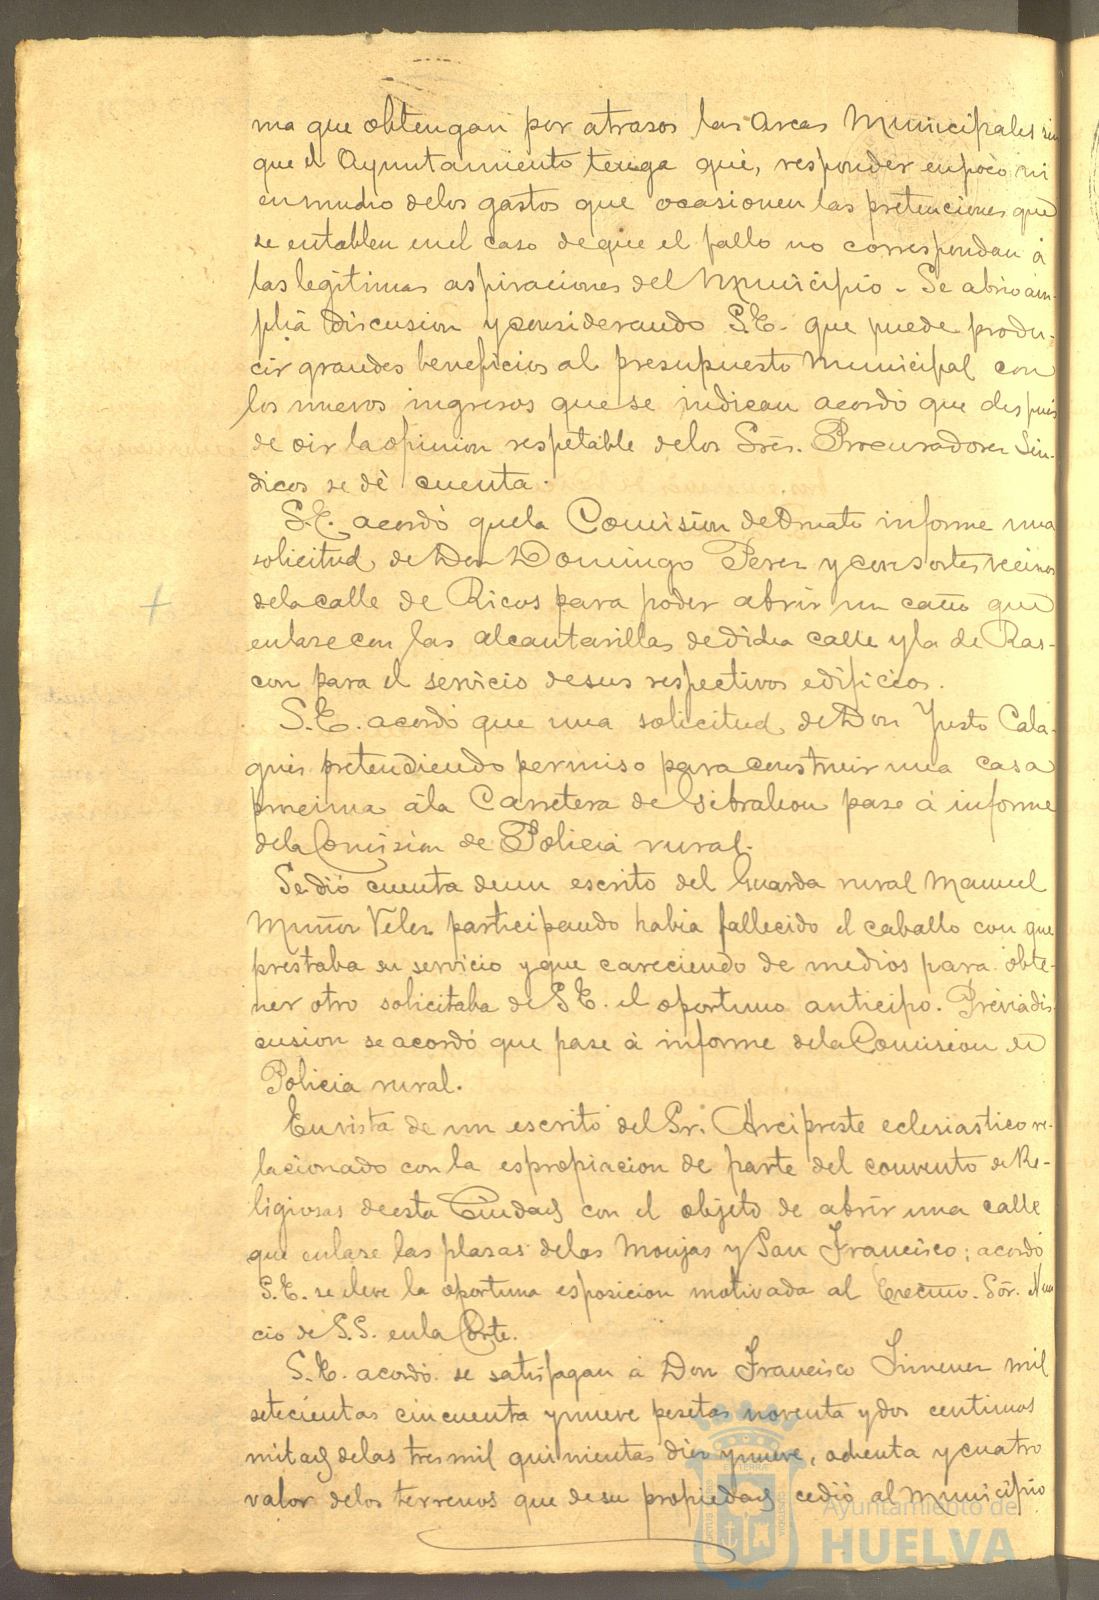 ma que obtengan por atrasos las arcas Municipales sin
que el Ayuntamiento tenga que, responder en poco ni
en mucho de los gastos que ocasionen las pretenciones que
se entablen en el caso de que el fallo no correspondan á
las legítimas aspiraciones del Municipio - Se abrió am-
plia discusion y considerando S.E. que puede produ-
cir grandes beneficios al presupuesto Municipal con
los nuevos ingresos que se indican acordó que despues
de oir la opinion respetable de los Sres. Procuradores Sin-
dicos se dé cuenta.
S.E. acordó que la Comisión de Ornato informe una
solicitud de Don Domingo Perez y consortes vecinos
de la calle de Ricos para poder abrir un caño que
enlase con las alcantarillas de dicha calle y la de Ras-
con para el servicio de sus respectivos edificios.
S.E. acordó que una solicitud de Don Justo Cala-
quis pretendiendo permiso para construir una casa
procima á la Carretera de Gibraleon pase á informe
de la Comisión de Policia rural.
Se dió cuenta de un escrito del Guarda rural Manuel
Muñoz Velez participando habia fallecido el caballo con que
prestaba su servicio y que careciendo de medios para obte-
ner otro solicitaba de S.E. el oportuno anticipo. Previa dis-
cusion se acordó que pase á informe de la Comision de
Policia rural.
En vista de un escrito del Sr. Arcipreste eclesiastico re-
lacionado con la espropiacion de parte del convento de Re-
ligiosas de esta Ciudad con el objeto de abrir una calle
que enlase las plasas de las Monjas y San Francisco; acordó
S.E. se eleve la oportuna esposicion motivada al Excmo. Sor. Nun
cio de S.S. en la Corte.
S.E. acordó se satisfagan á Don Francisco Jimenez mil
setecientas cincuenta y nueve pesetas noventa y dos centimos
mitad de las tres mil quinientas diez y nueve, ochenta y cuatro
valor de los terrenos que de su propiedad cedió al Municipio
Ayuntamiento de
HUELVA